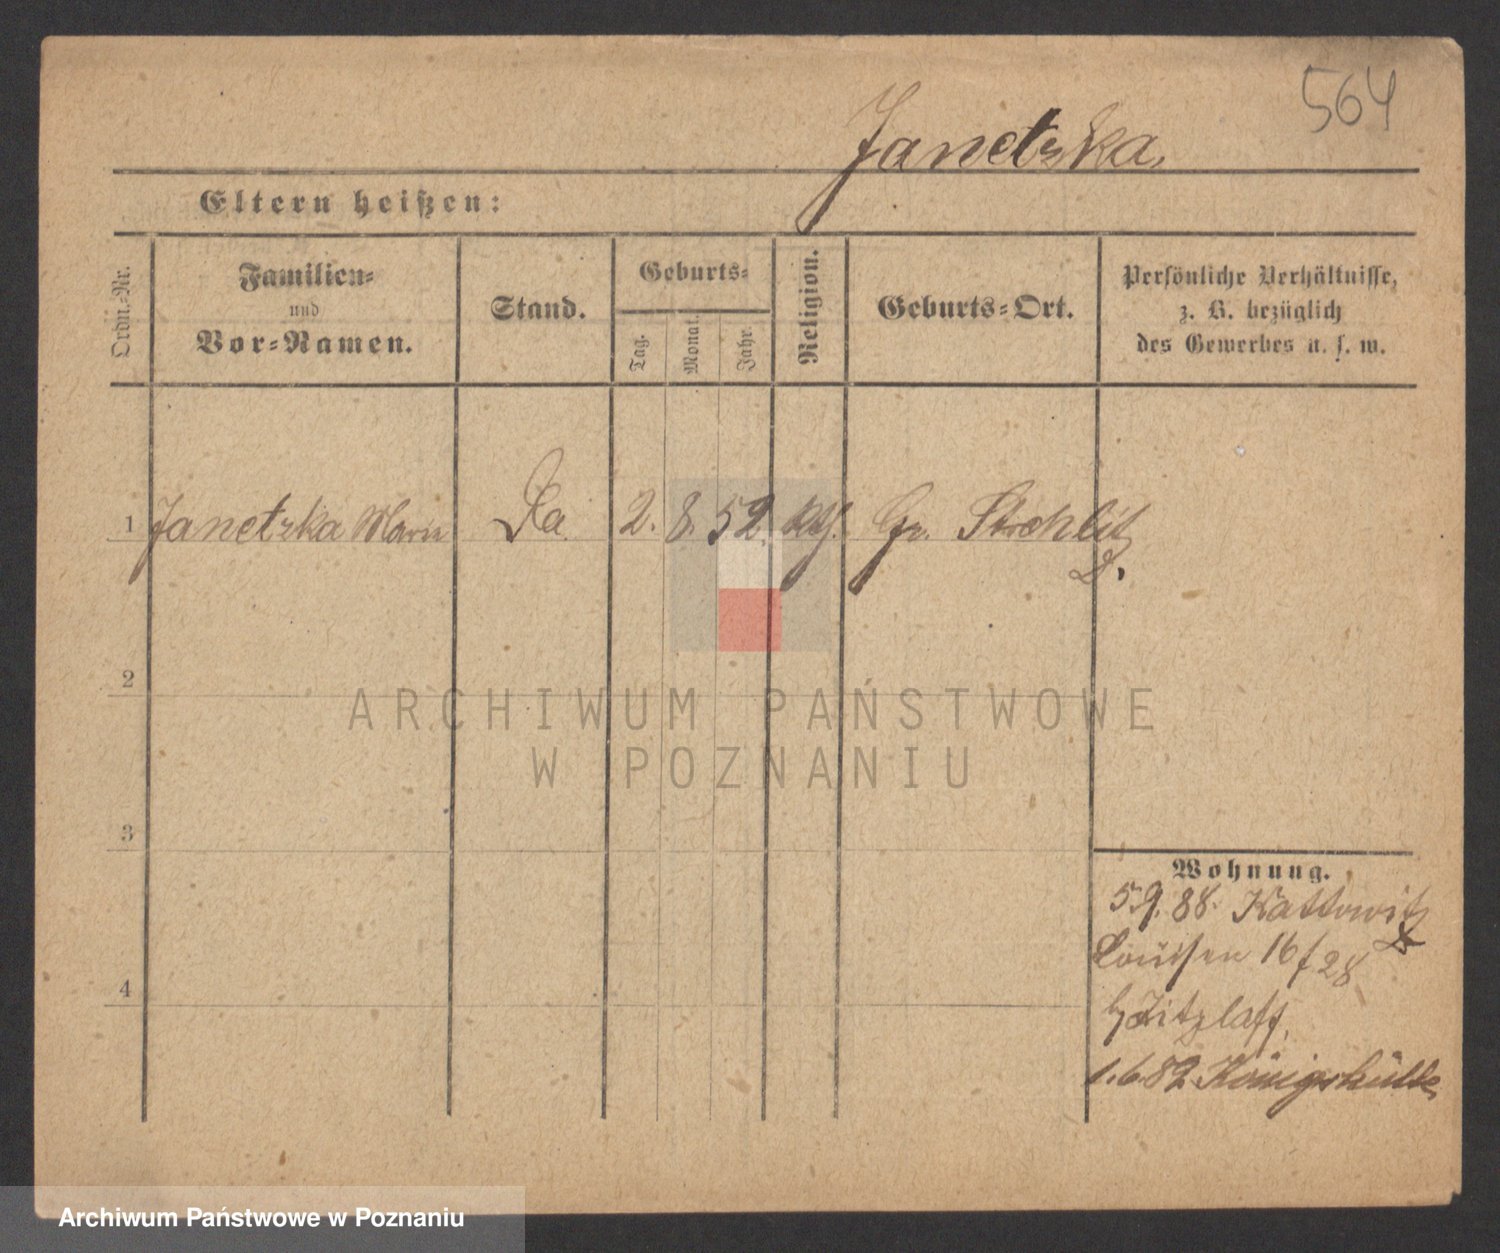 564
Janetzka.
Eltern heißen:
Ordn.-Nr.
Familien-
und
Vor-Namen.
Stand.
Geburts-
Tag.
Monat.
Jahr.
Religion.
Geburts-Ort.
Persönliche Verhältnisse,
z. B. bezüglich
des Gewerbes u. s. w.
1 Janetzka Marie 2. 8. 52. kth. Gr. Strehlitz
2
ARCHIWUM PAŃSTWOWE
W POZNANIU
3
Wohnung.
5.9.88. Kattowitz
Louisen 16 / 28
Zitzlaff,
4
1.6.89 Königshütte
Archiwum Państwowe w Poznaniu